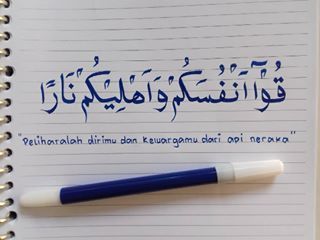 قُوْٓا اَنْفُسَكُمْ وَاَهْلِيْكُمْ نَارًا
"Peliharalah dirimu dan keluargamu dari api neraka"